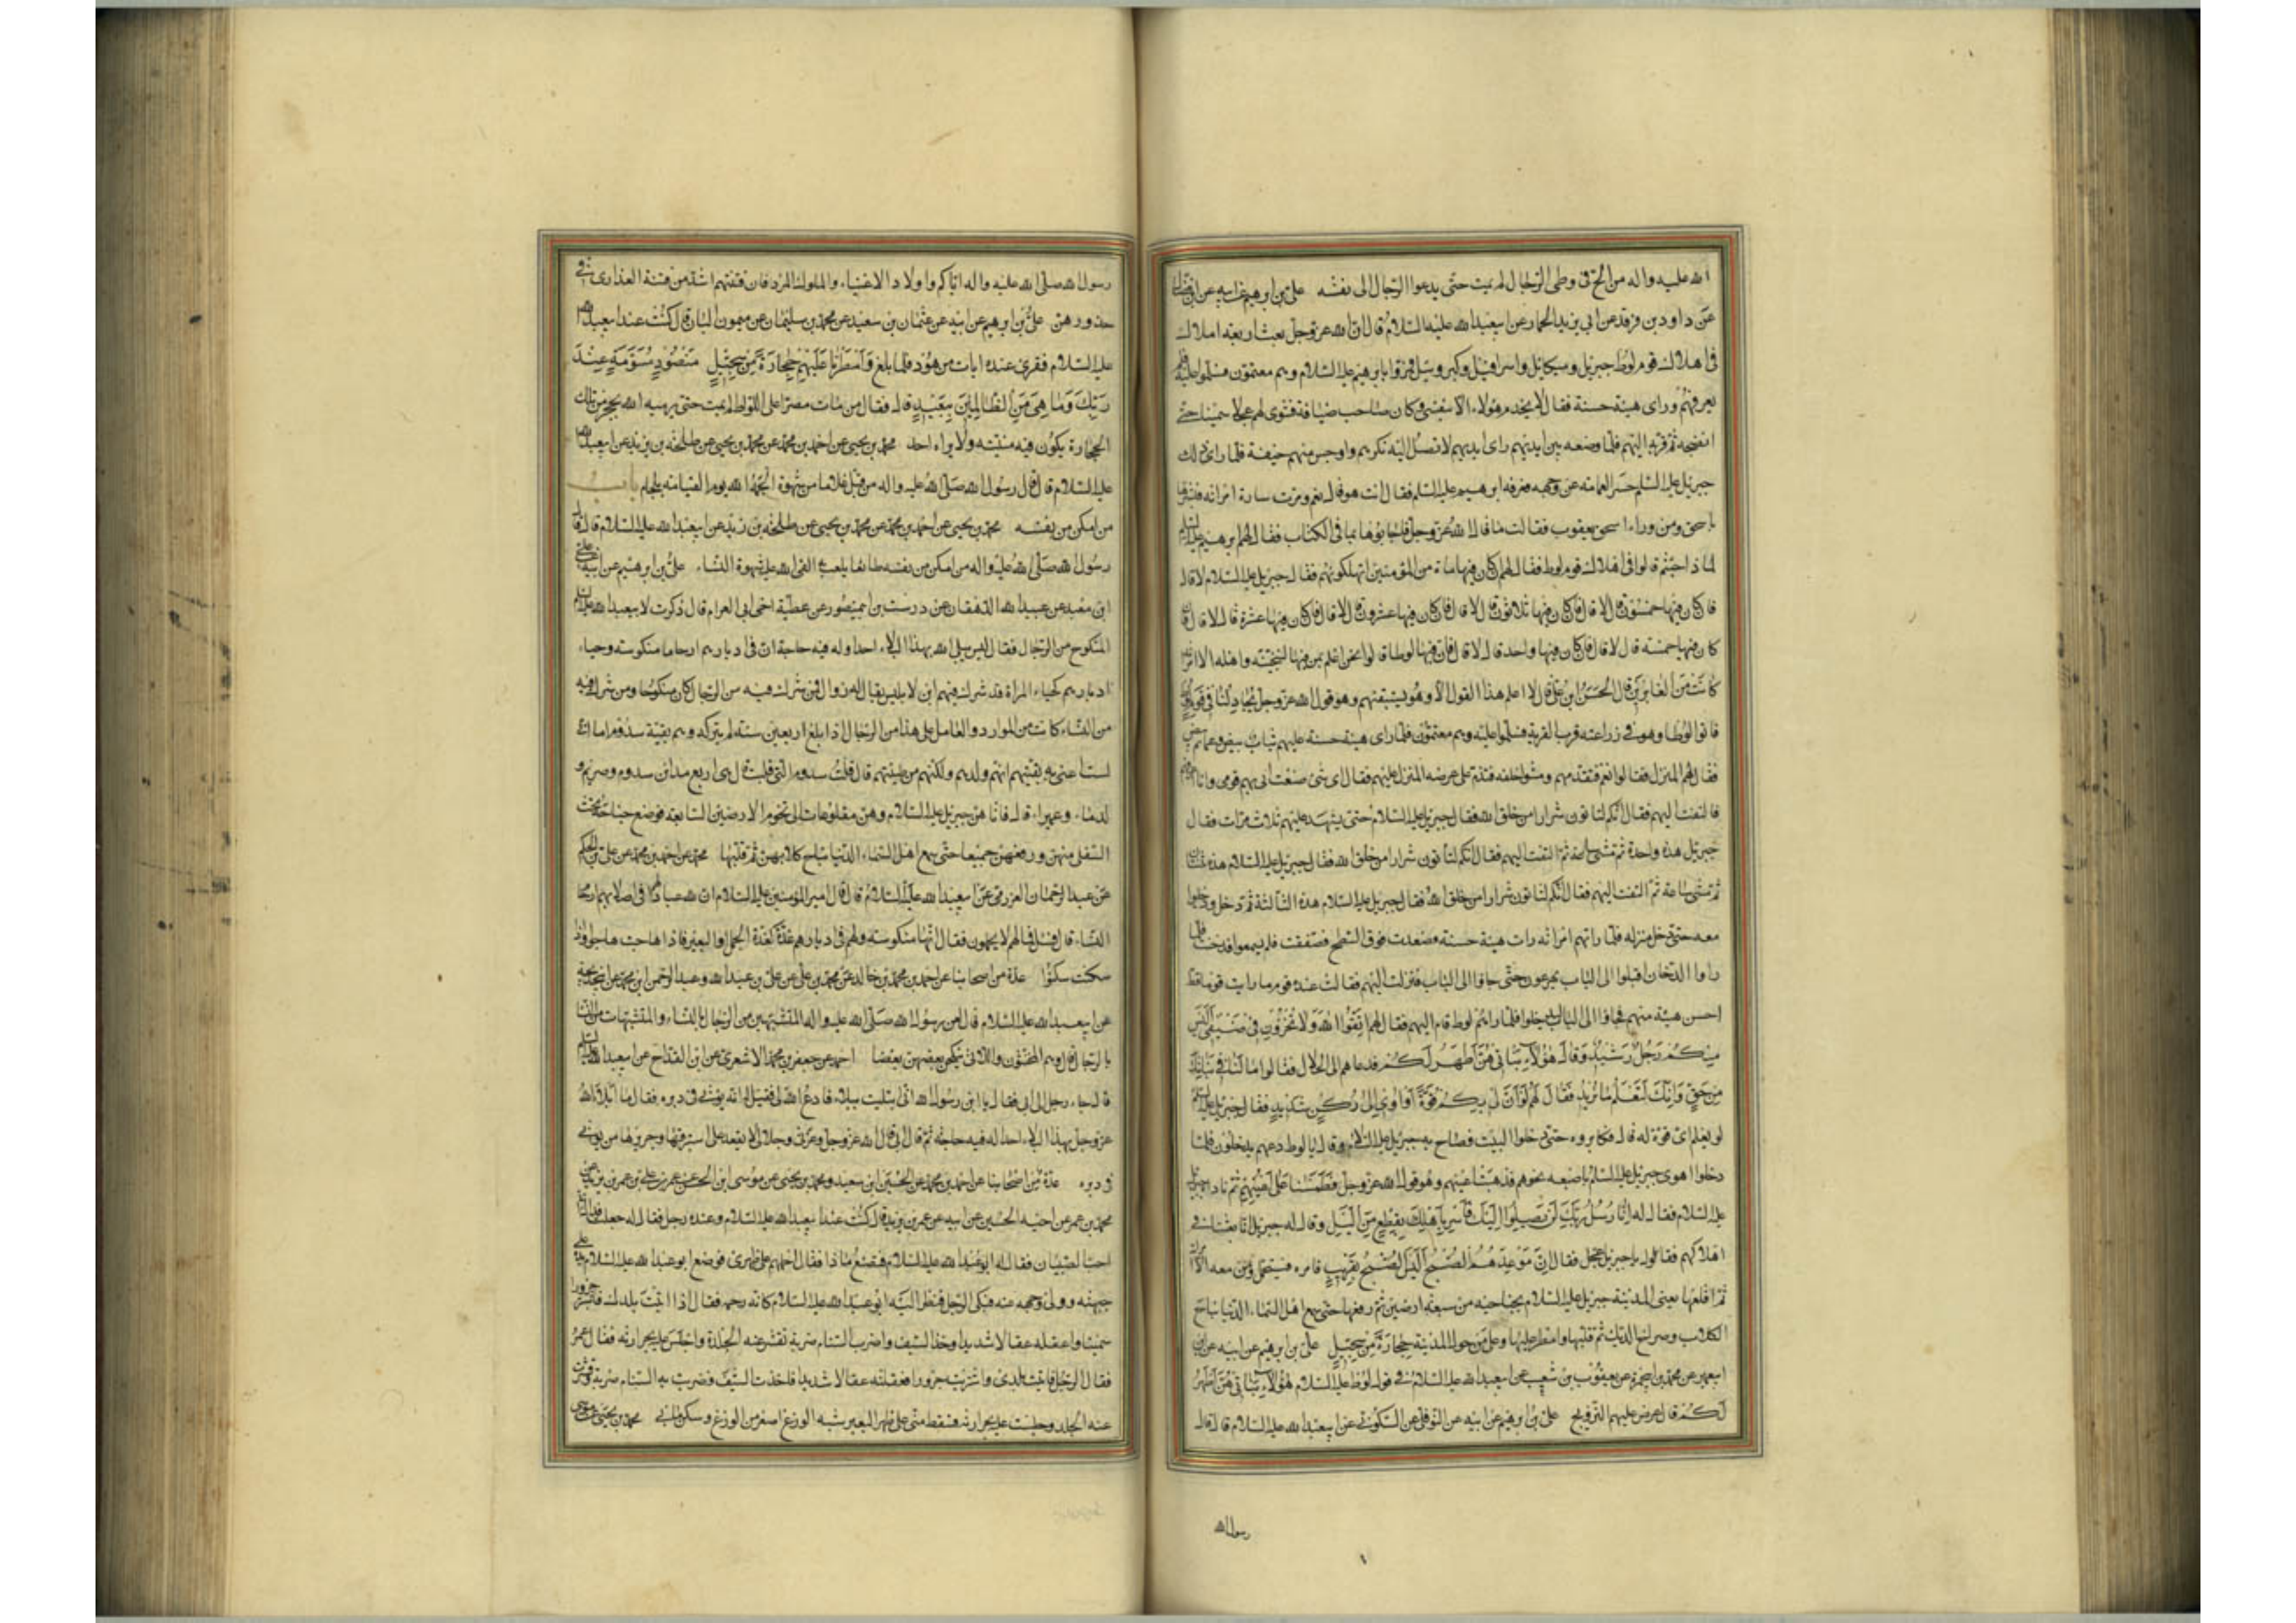 الله عليه واله من الح في وطى الرجال لم يمت حتى يدعوا الرجال الى نفسه على بن ابرهيم عن ابيه عن ابن فضال
عن داود بن فرقد عن ابي يزيد الحمار عن ابيعبدالله عليه السلام قال ان الله عز وجل بعث اربعة املاك
فى اهلاك قوم لوط جبريل وميكايل واسرافيل وكروبيل فمروا بابرهيم عليه السلام وهم معتمون فسلموا عليه فلم
يعرفهم وراى هيئة حسنة فقال لا يخدم هؤلاء الا نفسى وكان صاحب ضيافة فشوى لهم عجلا سمينا حتى
انضجه ثم قربه اليهم فلما وضعه بين ايديهم راى ايديهم لا تصل اليه نكرهم واوجس منهم خيفة فلما راى ذلك
جبريل عليه السلم حسر العمامة عن وجهه فعرفه ابرهيم عليه السلم فقال انت هو قال نعم ومرت سارة امراته فبشرها
باسحق ومن وراء اسحق يعقوب فقالت ما قال الله عز وجل فاجابوها بما فى الكتاب فقال لهم ابرهيم عليه السلم
لماذا جئتم قالوا فى اهلاك قوم لوط فقال لهم ان كان فيها ماة من المؤمنين اتهلكونهم فقال جبريل عليه السلام لا قال
فان كان فيها خمسون قال لا قال فان كان فيها ثلاثون قال لا قال فان كان فيها عشرون قال لا قال فان كان فيها عشرة قال لا قال فان
كان فيها خمسة قال لا قال فان كان فيها واحد قال لا قال فان فيها لوطا قالوا نحن اعلم بمن فيها لننجينه واهله الا امراته
كانت من الغابرين قال الحسن ابن على قال لا اعلم هذا القول الا وهو يستبقيهم وهو قول الله عز وجل يجادلنا فى قوم لوط
فاتوا لوطا وهو فى زراعة قرب القرية فسلموا عليه وهم معتمون فلما راى هيئة حسنة عليهم ثياب بيض وعمائم بيض
فقال لهم المنزل فقالوا نعم فتقدمهم ومشوا خلفه فندم على عرضه المنزل عليهم فقال اى شى صنعت اتى بهم قومى وانا اعرفهم
فالتفت اليهم فقال انكم لتاتون شرارا من خلق الله فقال جبريل عليه السلام حتى يشهد عليهم ثلاث مرات فقال
جبريل هذه واحدة ثم مشى ساعة ثم التفت اليهم فقال انكم لتاتون شرارا من خلق الله فقال جبريل عليه السلام هذه ثنتان
ثم مشى ساعة ثم التفت اليهم فقال انكم لتاتون شرارا من خلق الله فقال جبريل عليه السلام هذه الثالثة ثم دخل ودخلوا
معه حتى دخل منزله فلما راتهم امراته رات هيئة حسنة وصعدت فوق السطح فصفقت فلم يسمعوا فدخنت فلما
راوا الدخان اقبلوا الى الباب يهرعون حتى جاؤا الى الباب فنزلت اليهم فقالت عنده قوم ما رايت قوما قط
احسن هيئة منهم فجاؤا الى الباب ليدخلوا فلما راهم لوط قام اليهم فقال لهم اتقوا الله ولا تخزون فى ضيفى اليس
منكم رجل رشيد وقال هؤلاء بناتى هن اطهر لكم فدعاهم الى الحلال فقالوا ما لنا فى بناتك
من حق وانك لتعلم ما نريد فقال لهم لو ان لى بكم قوة او اوى الى ركن شديد فقال جبريل عليه السلم
لو يعلم اى قوة له قال فكابروه حتى دخلوا البيت فصاح به جبريل عليه السلم وقال يا لوط دعهم يدخلون فلما
دخلوا اهوى جبريل عليه السلم باصبعه نحوهم فذهبت اعينهم وهو قول الله عز وجل فطمسنا على اعينهم ثم ناداه جبريل
عليه السلام فقال له انا رسل ربك لن يصلوا اليك فاسر باهلك بقطع من الليل وقال له جبريل انا بعثنا فى
اهلاكهم فقال يا جبريل عجل فقال ان موعدهم الصبح اليس الصبح بقريب فامره فيتحمل ومن معه الا امراته
ثم اقلعها يعنى المدينة جبريل عليه السلام بجناحيه من سبعة ارضين ثم رفعها حتى سمع اهل السماء الدنيا نباح
الكلاب وصراخ الديك ثم قلبها وامطر عليها وعلى من حول المدينة حجارة من سجيل على بن ابرهيم عن ابيه عن ابن
ابيعمير عن محمد بن ابيحمزة عن يعقوب بن شعيب عن ابيعبدالله عليه السلام فى قول لوط عليه السلام هؤلاء بناتى هن اطهر
لكم قال عرض عليهم التزويج على بن ابرهيم عن ابيه عن النوفلى عن السكونى عن ابيعبدالله عليه السلام قال قال
رسول الله
رسول الله صلى الله عليه واله اياكم واولاد الاغنياء والملوك المرد فان فتنتهم اشد من فتنة العذارى فى
خدورهن على بن ابرهيم عن ابيه عن عثمان بن سعيد عن محمد بن سليمان عن ميمون البان قال كنت عند ابيعبدالله
عليه السلام فقرى عنده ايات من هود فلما بلغ وامطرنا عليهم حجارة من سجيل منضود مسومة عند
ربك وما هى من الظالمين ببعيد قال فقال من مات مصرا على اللواط لم يمت حتى يرميه الله بحجر من تلك
الحجارة يكون فيه منيته ولا يراه احد محمد بن يحيى عن احمد بن محمد عن محمد بن يحيى عن طلحة بن زيد عن ابيعبدالله
عليه السلام قال قال رسول الله صلى الله عليه واله من قبل غلاما من شهوة الجمه الله يوم القيامة بلجام باب
من امكن من نفسه محمد بن يحيى عن احمد بن محمد عن محمد بن يحيى عن طلحة بن زيد عن ابيعبدالله عليه السلام قال قال
رسول الله صلى الله عليه واله من امكن من نفسه طائعا يلعب به القى الله عليه شهوة النساء على بن ابرهيم عن ابيه عن على
ابن معبد عن عبيدالله الدهقان عن درست بن ابيمنصور عن عطية اخى ابى العرام قال ذكرت لابيعبدالله عليه السلم
المنكوح من الرجال فقال ليس يبلى الله بهذا البلاء احدا وله فيه حاجة ان فى ادبارهم ارحاما منكوسة وحياء
ادبارهم كحياء المراة قد شرك فيهم ابن لابليس يقال له زوال فمن شرك فيه من الرجال كان منكوحا ومن شرك فيه
من النساء كانت من الموارد والعامل على هذا من الرجال اذا بلغ اربعين سنة لم يتركه وهم بقية سدوم اما انى
لست اعنى بهم بقيتهم انهم ولدهم ولكنهم من طينتهم قال قلت سدوم التى قلبت قال هى اربع مداين سدوم وصريم و
لدماء وعميراء قال فاتاهن جبريل عليه السلام وهن مقلوعات الى تخوم الارضين السابعة فوضع جناحه تحت
السفلى منهن ورفعهن جميعا حتى سمع اهل السماء الدنيا نباح كلابهن ثم قلبها محمد عن احمد بن محمد عن على بن الحكم
عن عبدالرحمان العزرمى عن ابيعبدالله عليه السلام قال قال امير المؤمنين عليه السلام ان لله عبادا لهم فى اصلابهم ارحام
النساء قال فسئل فما لهم لا يحملون فقال انها منكوسة ولهم فى ادبارهم غدة كغدة الجمل او البعير فاذا هاجت هاجوا واذا
سكنت سكنوا عدة من اصحابنا عن احمد بن محمد بن خالد عن محمد بن على عن على بن عبدالله وعبدالرحمن ابن محمد عن ابيخديجة
عن ابيعبدالله عليه السلام قال لعن رسول الله صلى الله عليه واله المتشبهين من الرجال بالنساء والمتشبهات من النساء
بالرجال قال وهم المخنثون واللاتى ينكحن بعضهن بعضا احمد عن جعفر بن محمد الاشعرى عن ابن القداح عن ابيعبدالله عليه السلم
قال جاء رجل الى ابى فقال يا ابن رسول الله انى ابتليت ببلاء فادع الله لى فقيل له انه يؤتى فى دبره فقال ما ابلى الله
عز وجل بهذا البلاء احدا له فيه حاجة ثم قال ابى قال الله عز وجل وعزتى وجلالى لا يقعد على استبرقها وحريرها من يؤتى
فى دبره عدة من اصحابنا عن احمد بن محمد عن الحسين ابن سعيد ومحمد بن يحيى عن موسى ابن الحسن عن عمر بن على بن عمر بن يزيد عن
محمد بن عمر عن اخيه الحسين عن ابيه عن عمر بن يزيد قال كنت عند ابيعبدالله عليه السلام وعنده رجل فقال له جعلت فداك انى
احب الصبيان فقال له ابو عبدالله عليه السلام فتصنع ماذا فقال احملهم على ظهرى فوضع ابو عبدالله عليه السلام يده على
جبهته وولى وجهه عنه فبكى الرجل فنظر اليه ابو عبدالله عليه السلام كانه رحمه فقال اذا اتيت بلدك فاشتر جزورا
سمينا واعقله عقالا شديدا وخذ السيف واضرب السنام ضربة تقشر عنه الجلدة واجلس عليه بحرارته فقال عمر
فقال الرجل فاتيت بلدى واشتريت جزورا فعقلته عقالا شديدا فاخذت السيف وضربت به السنام ضربة وقشرت
عنه الجلد وجلست عليه بحرارته فسقط منى على ظهر البعير شبه الوزغ اصغر من الوزغ وسكن ما بى محمد بن يحيى عن موسى